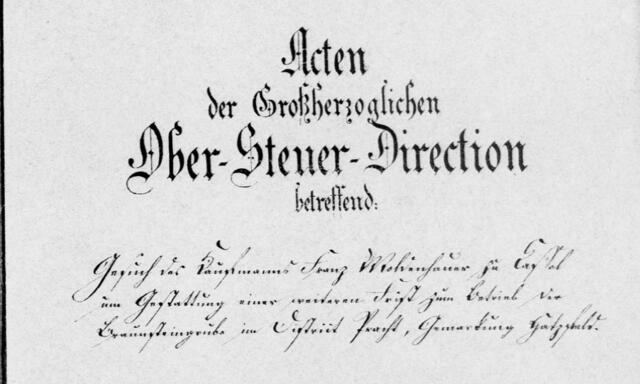 Acten
der Großherzoglichen
Ober-Steuer-Direction
betreffend:
Gesuch des Kaufmanns Franz Moldenhauer zu Cassel
um Gestattung einer weiteren Frist zum Betrieb der
Braunsteingrube im Distrikt Pracht, Gemarkung Hatzfeld.